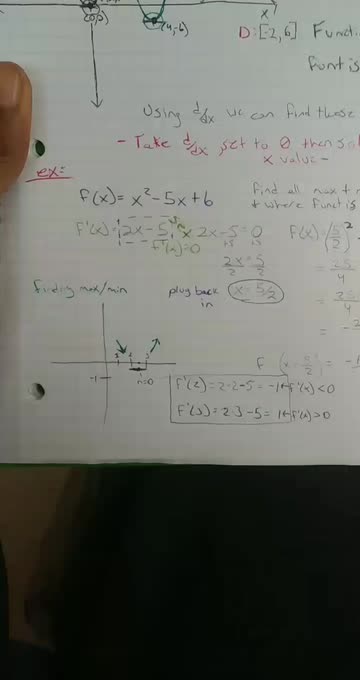 X
(0,0)
(4,-6)
D: [-2,6] Functi
Funt is
Using d/dx we can find these
- Take d/dx set to 0 then sol
x value -
ex:
f(x) = x² - 5x + 6
Find all max +
+ where funct is
f'(x) = 2x - 5
2x - 5 = 0
+5 +5
f'(x) = 0
2x = 5
2 2
x = 5/2
F(x) = (5/2)²
= 25
4
= 25
4
finding max/min
plug back
in
-1
f'(2) = 2·2 - 5 = -1 ← f'(x) < 0
f'(3) = 2·3 - 5 = 1 ← f'(x) > 0